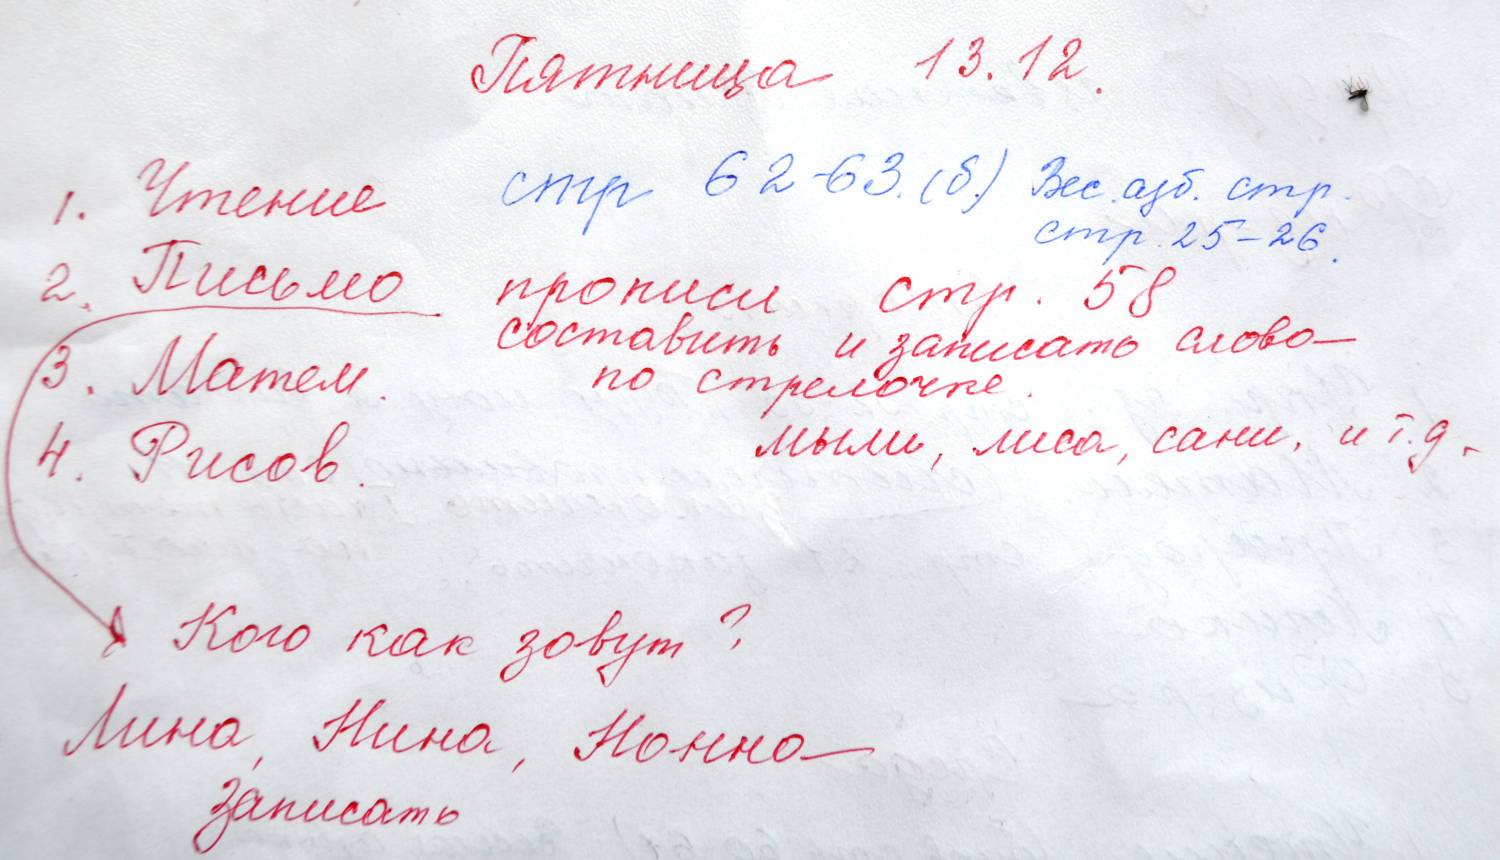 Пятница 13.12.
1. Чтение стр 62-63. (б.) Вес. азб. стр.
стр. 25-26.
2. Письмо прописи стр. 58
составить и записать слово
3. Матем. по стрелочке.
4. Рисов. мыли, лиса, сани, и т.д.
Кого как зовут?
Лина, Нина, Нонна
записать